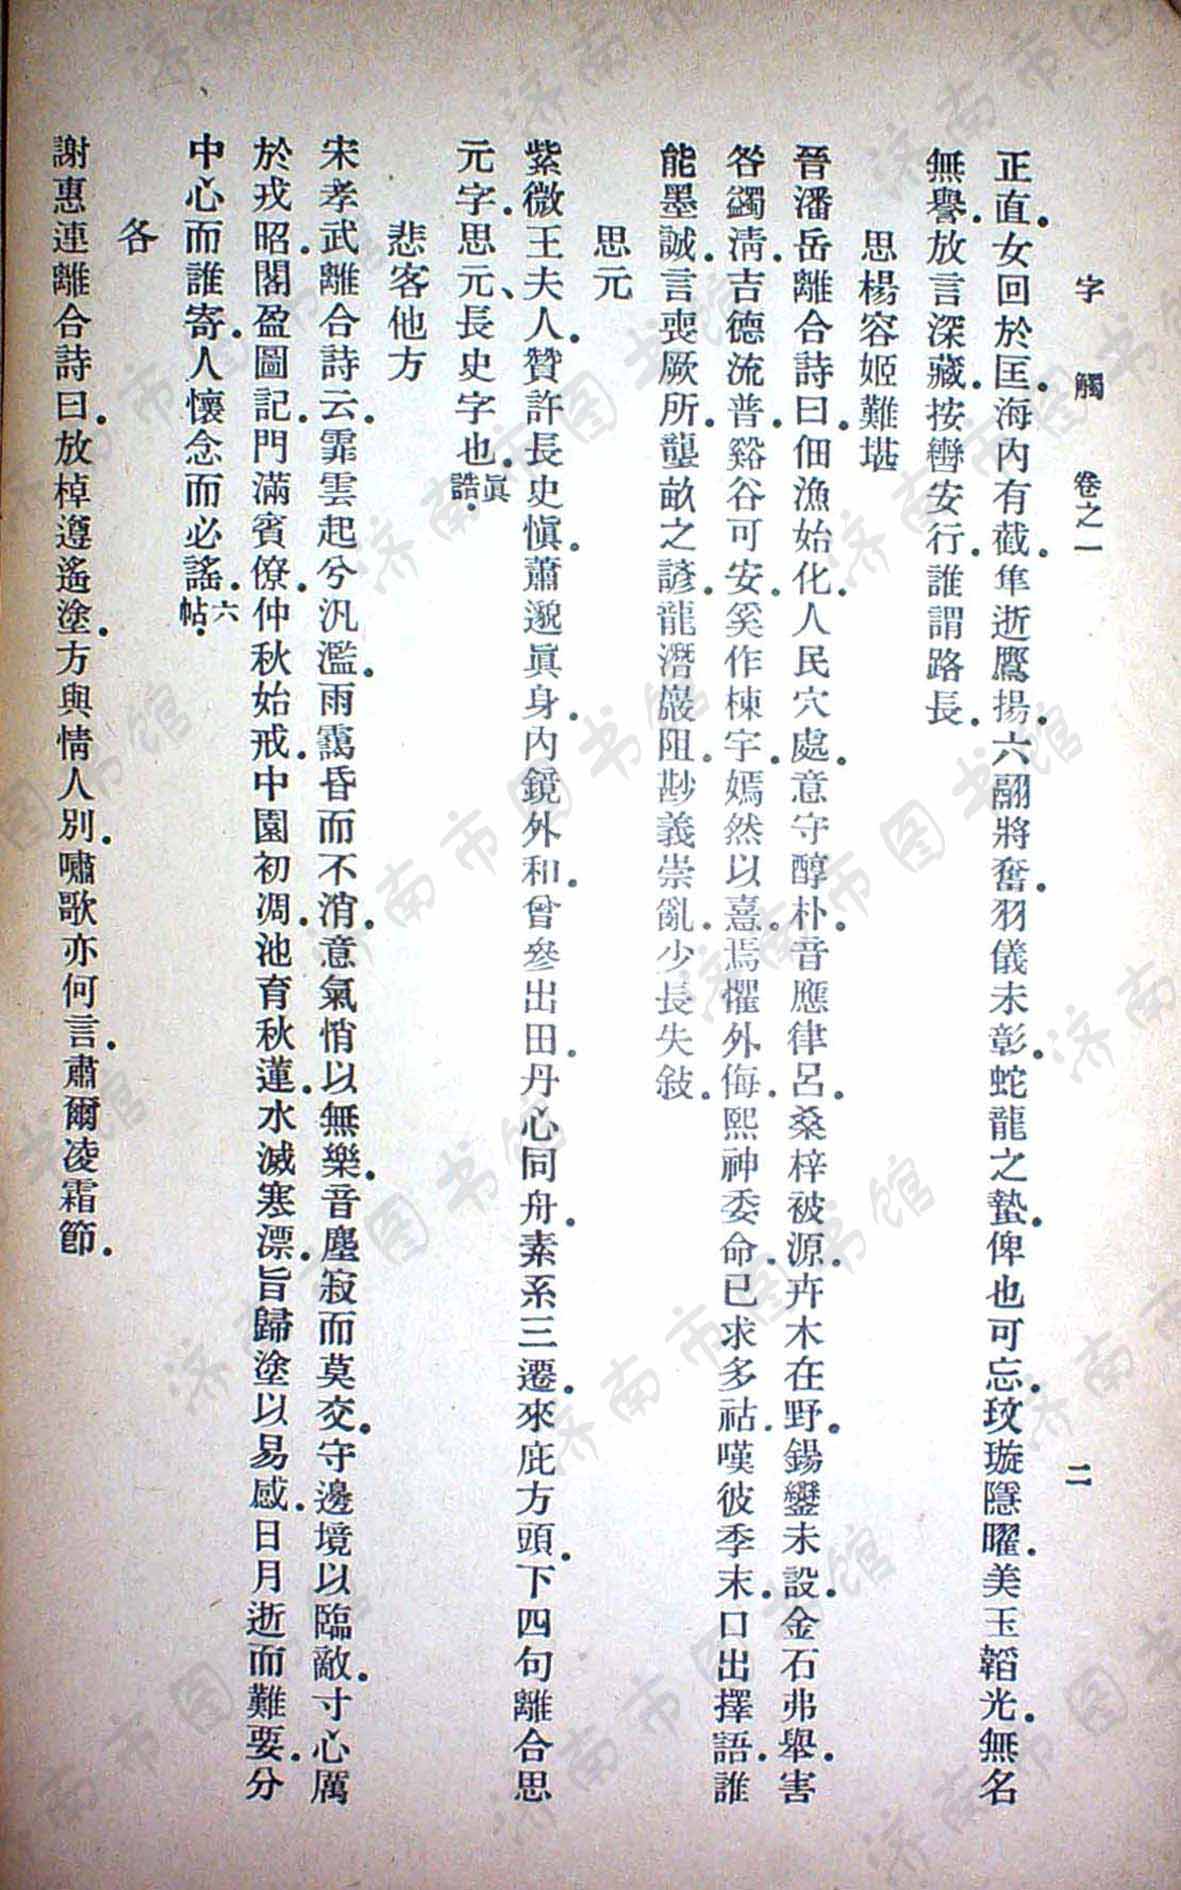 字觸 卷之一 二
正直。女回於匡。海內有截。隼逝鷹揚。六翮將奮。羽儀未彰。蛇龍之蟄。俾也可忘。玟璇隱曜。美玉韜光。無名
無譽。放言深藏。按轡安行。誰謂路長。
思楊容姬難堪
晉潘岳離合詩曰。佃漁始化。人民穴處。意守醇朴。音應律呂。桑梓被源。卉木在野。鍚鑾未設。金石弗舉。害
咎蠲淸。吉德流普。谿谷可安。奚作棟宇。嫣然以憙。焉懼外侮。熙神委命。已求多祜。嘆彼季末。口出擇語。誰
能墨誠。言喪厥所。壟畝之諺。龍潛巖阻。尠義崇亂。少長失敍。
思元
紫微王夫人。贊許長史愼。蕭邈眞身。內鏡外和。曾參出田。丹心同舟。素系三遷。來庇方頭。下四句離合思
元字。思元、長史字也。眞誥。
悲客他方
宋孝武離合詩云。霏雲起兮汎濫。雨靄昏而不消。意氣悄以無樂。音塵寂而莫交。守邊境以臨敵。寸心厲
於戎昭。閣盈圖記。門滿賓僚。仲秋始戒。中園初凋。池育秋蓮。水滅寒漂。旨歸塗以易感。日月逝而難要。分
中心而誰寄。人懷念而必謠。六帖。
各
謝惠連離合詩曰。放棹遵遙塗。方與情人別。嘯歌亦何言。肅爾凌霜節。